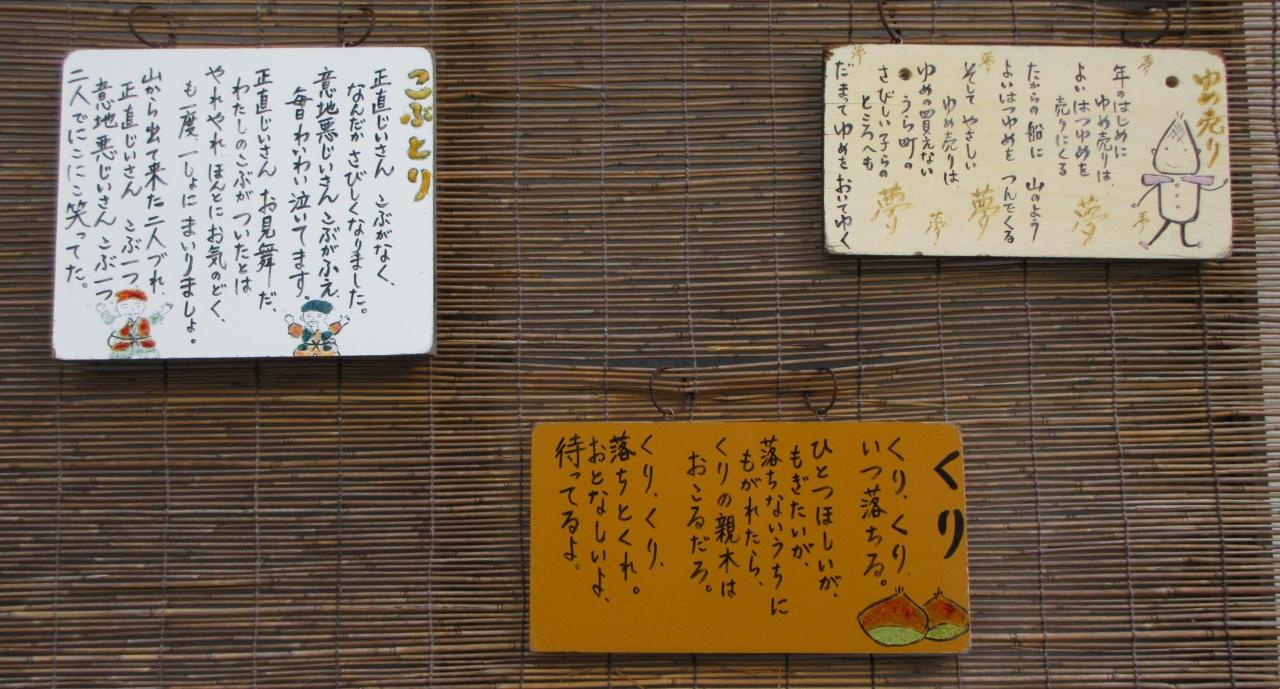 こぶとり
正直じいさん こぶがなく、
なんだか さびしくなりました。
意地悪じいさん こぶがふえ、
毎日わいわい泣いてます。
正直じいさん お見舞だ、
わたしのこぶが ついたとは
やれやれ ほんとにお気のどく、
も一度 一しょに まいりましょ。
山から出て来た二人づれ
正直じいさん こぶ一つ
意地悪じいさん こぶ一つ
二人でにこにこ笑ってた。
ゆめ売り
年のはじめに
ゆめ売りは、
よい はつゆめを
売りにくる
たからの船に 山のよう
よいはつゆめを つんでくる
そして やさしい
ゆめ売りは、
ゆめの買えない
うら町の
さびしい子らの
ところへも
だまって ゆめを おいてゆく
夢
夢
夢
夢
夢
夢
夢
くり
くり、くり、
いつ落ちる。
ひとつほしいが、
もぎたいが、
落ちないうちに
もがれたら、
くりの親木は
おこるだろ。
くり、くり、
落ちとくれ。
おとなしいよ、
待ってるよ。